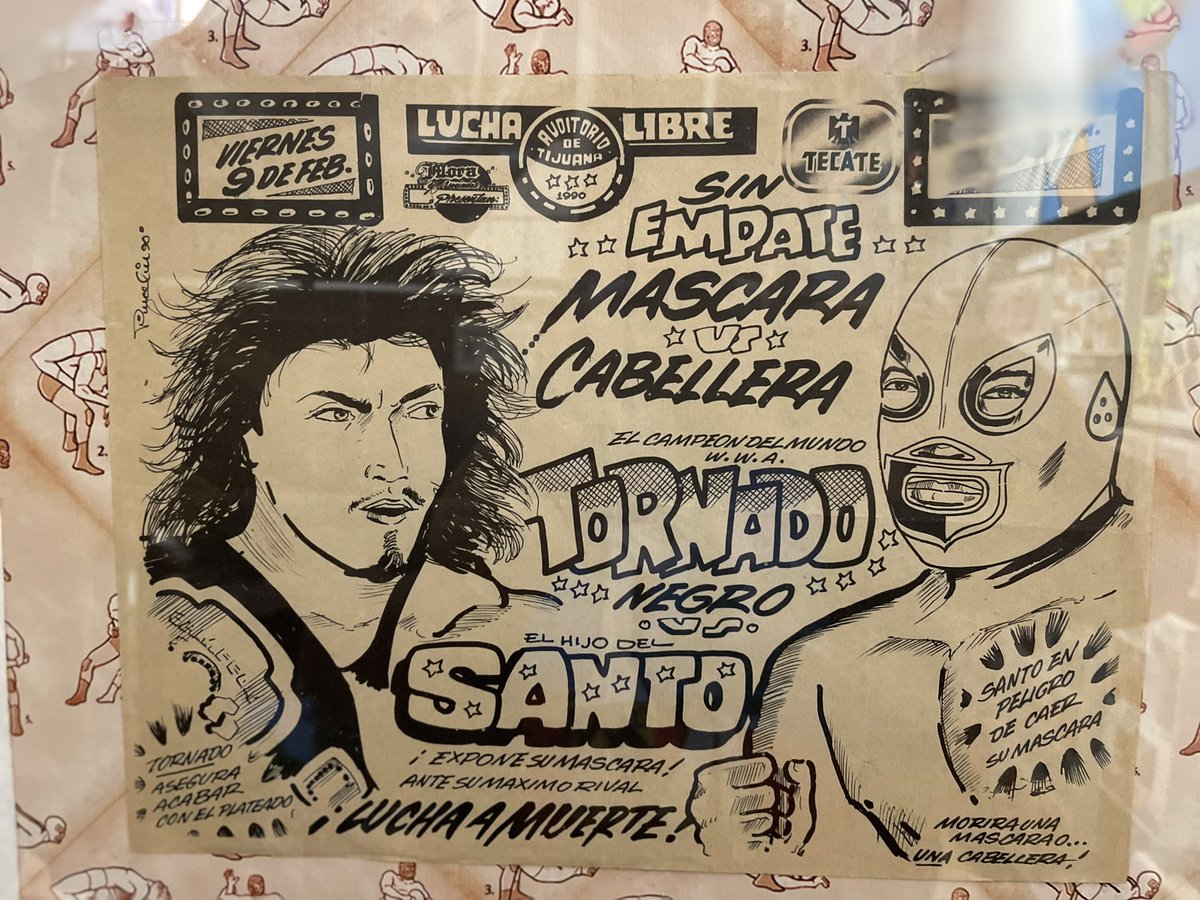 VIERNES
9 DE FEB.
LUCHA LIBRE
AUDITORIO
DE
TIJUANA
1990
Presentan:
T
TECATE
SIN
EMPATE
MASCARA
VS
CABELLERA
EL CAMPEON DEL MUNDO
W.W.A.
TORNADO
NEGRO
VS.
EL HIJO DEL
SANTO
¡EXPONE SU MASCARA!
ANTE SU MAXIMO RIVAL
¡LUCHA A MUERTE!
TORNADO
ASEGURA
ACABAR
CON EL PLATEADO
SANTO EN
PELIGRO
DE CAER
SU MASCARA
MORIRA UNA
MASCARA O...
UNA CABELLERA!
3.
3.
5.
5.
2.
5.
3.
3.